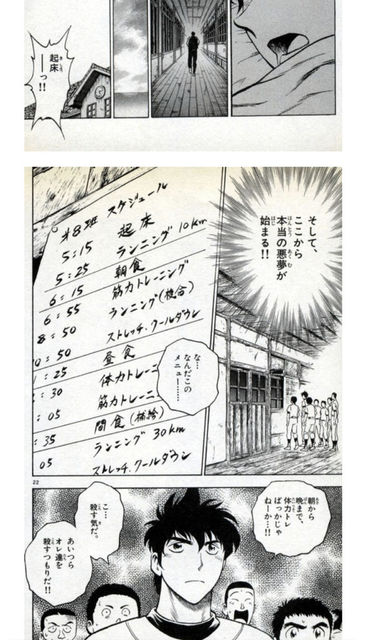 起床
ーっ!!
そして、
ここから
本当の悪夢が
始まる!!
第8班 スケジュール
5:15 起床
5:25 ランニング10km
6:15 朝食
6:55 筋力トレーニング
8:50 ランニング(複合)
:50 ストレッチ.クールダウン
:25 昼食
:30 体力トレーニ
:05 筋力トレーニ
35 間食(補給)
05 ランニング 30km
ストレッチ.クールダウン
な…
なんだこの
メニュー……
22
朝から
晩まで、
体力トレ
ばっかじゃ
ねーか…!!
こ…
殺す気だ。
あいつら
オレ達を
殺すつもりだ!!